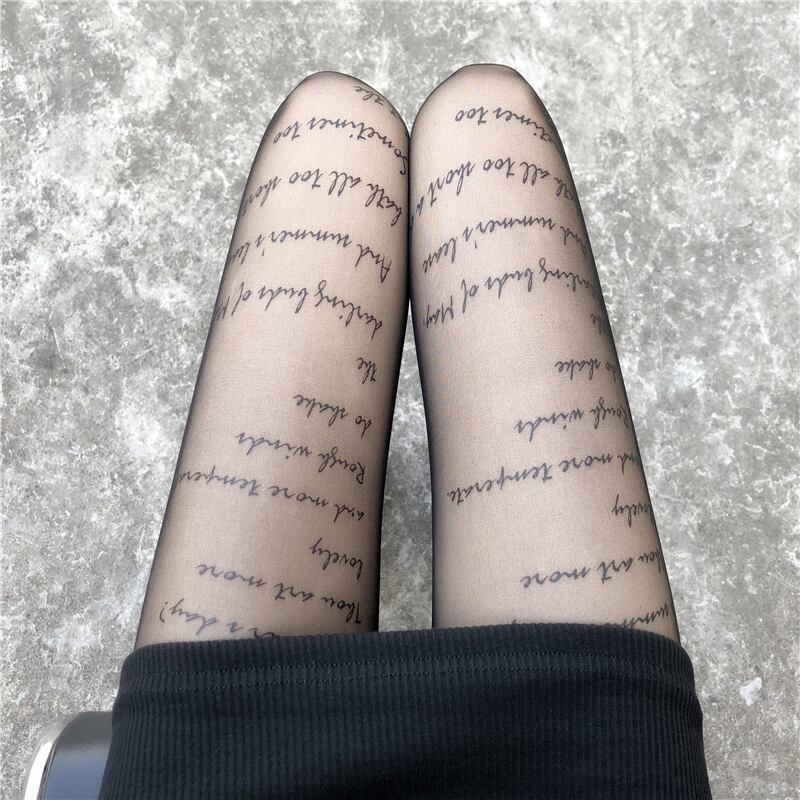 umm
hou art more
ovely
and more temperate.
Rough winds
to shake
he
darling buds of May,
And summer's lease
th all too short a
times too
er's day?
Thou art more
lovely
and more tempera
Rough winds
to shake
the
darling buds of M
And summer's lea
hath all too short
Sometimes too
the